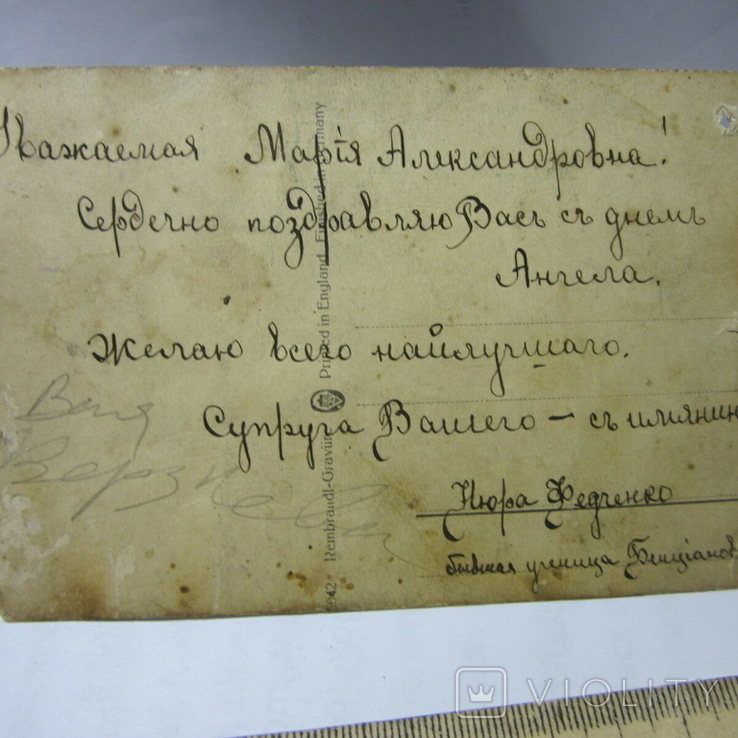 Уважаемая Марія Александровна!
Сердечно поздравляю Васъ съ днемъ
Ангела.
Желаю всего найлучшаго.
Супруга Вашего — съ имянин
Нюра Федченко
бывшая ученица
Веня
Printed in England. Finished in Germany
Rembrandt-Gravur
VIOLITY